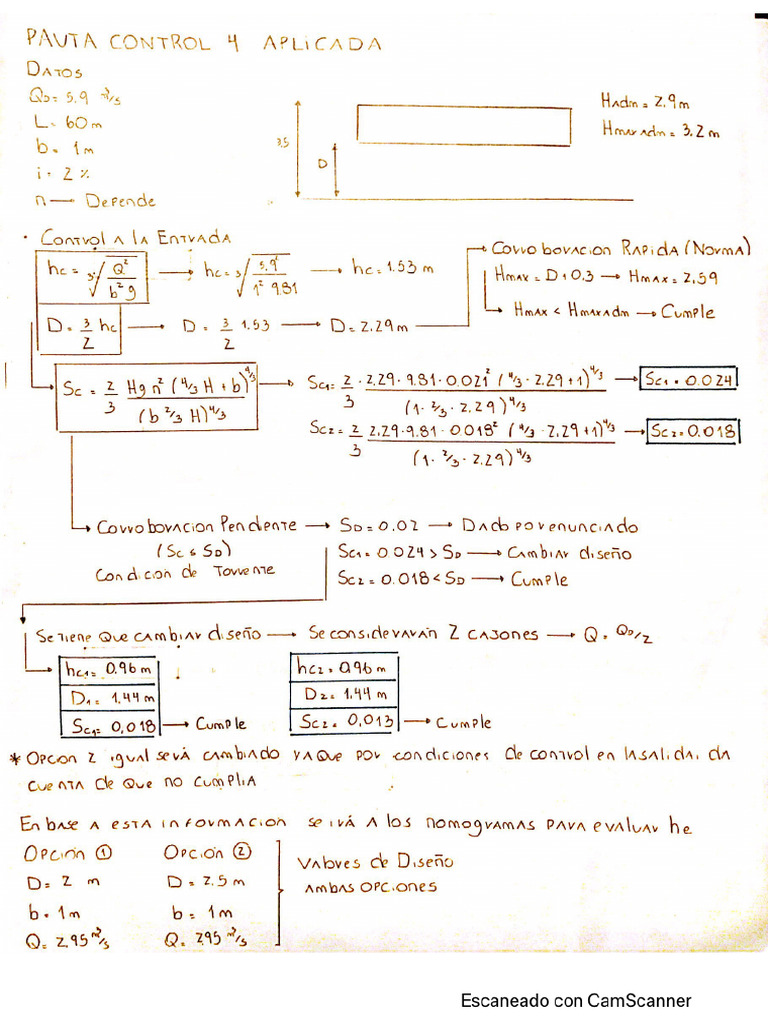 PAUTA CONTROL 4 APLICADA
DATOS
QD = 5.9 m³/s
L = 60 m
b = 1 m
i = 2 %
n → Depende
3,5
D
HAdm = 2.9 m
Hmax adm = 3.2 m
· CONTROL A LA ENTRADA
hc = ³√(Q²/b² g) → hc = ³√(5.9²/1² 9.81) → hc = 1.53 m
D = 3/2 hc → D = 3/2 1.53 → D = 2.29 m
CORROBORACION RAPIDA (NORMA)
Hmax = D + 0.3 → Hmax = 2,59
Hmax < Hmax adm → Cumple
Sc = 2/3 Hg n² (4/3 H + b)^4/3 / (b 2/3 H)^4/3
Sc1 = 2/3 · 2,29 · 9.81 · 0.021² (4/3 · 2.29 + 1)^4/3 / (1 · 2/3 · 2.29)^4/3 → Sc1 = 0.024
Sc2 = 2/3 2.29 · 9.81 · 0.018² (4/3 · 2,29 + 1)^4/3 / (1 · 2/3 · 2.29)^4/3 → Sc2 = 0.018
CORROBORACION PENDIENTE → SD = 0.02 → DADO POR ENUNCIADO
(Sc ≤ SD)
CONDICION DE TORRENTE
Sc1 = 0.024 > SD → CAMBIAR DISEÑO
Sc2 = 0.018 < SD → Cumple
SE TIENE QUE CAMBIAR DISEÑO → SE CONSIDERARÁN 2 CAJONES → Q = QD/2
hc1 = 0.96 m
D1 = 1.44 m
Sc1 = 0,018 → Cumple
hc2 = 0.96 m
D2 = 1.44 m
Sc2 = 0,013 → Cumple
* OPCION 2 igual SERÁ CAMBIADO YA QUE POR CONDICIONES DE CONTROL EN LA SALIDA, DA
CUENTA DE QUE NO CUMPLIA
EN BASE A ESTA INFORMACION SE IRÁ A LOS NOMOGRAMAS PARA EVALUAR he
OPCIÓN ①
D = 2 m
b = 1 m
Q = 2,95 m³/s
OPCIÓN ②
D = 2.5 m
b = 1 m
Q = 2.95 m³/s
VALORES DE DISEÑO
AMBAS OPCIONES
Escaneado con CamScanner